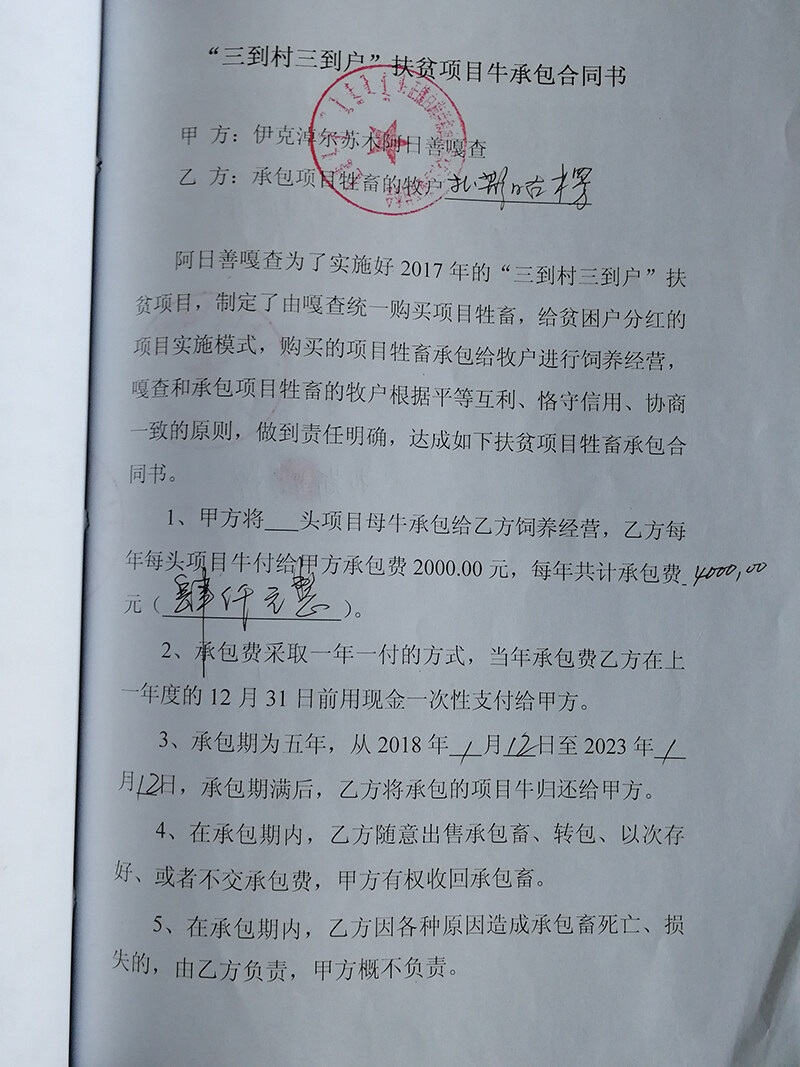 “三到村三到户”扶贫项目牛承包合同书
甲 方：伊克淖尔苏木阿日善嘎查
乙 方：承包项目牲畜的牧户
阿日善嘎查为了实施好 2017 年的“三到村三到户”扶
贫项目，制定了由嘎查统一购买项目牲畜，给贫困户分红的
项目实施模式，购买的项目牲畜承包给牧户进行饲养经营，
嘎查和承包项目牲畜的牧户根据平等互利、恪守信用、协商
一致的原则，做到责任明确，达成如下扶贫项目牲畜承包合
同书。
1、甲方将___头项目母牛承包给乙方饲养经营，乙方每
年每头项目牛付给甲方承包费 2000.00 元，每年共计承包费 4000,00
元（肆仟元整）。
2、承包费采取一年一付的方式，当年承包费乙方在上
一年度的 12 月 31 日前用现金一次性支付给甲方。
3、承包期为五年，从 2018 年 1 月 12 日至 2023 年 1
月 12 日，承包期满后，乙方将承包的项目牛归还给甲方。
4、在承包期内，乙方随意出售承包畜、转包、以次存
好、或者不交承包费，甲方有权收回承包畜。
5、在承包期内，乙方因各种原因造成承包畜死亡、损
失的，由乙方负责，甲方概不负责。